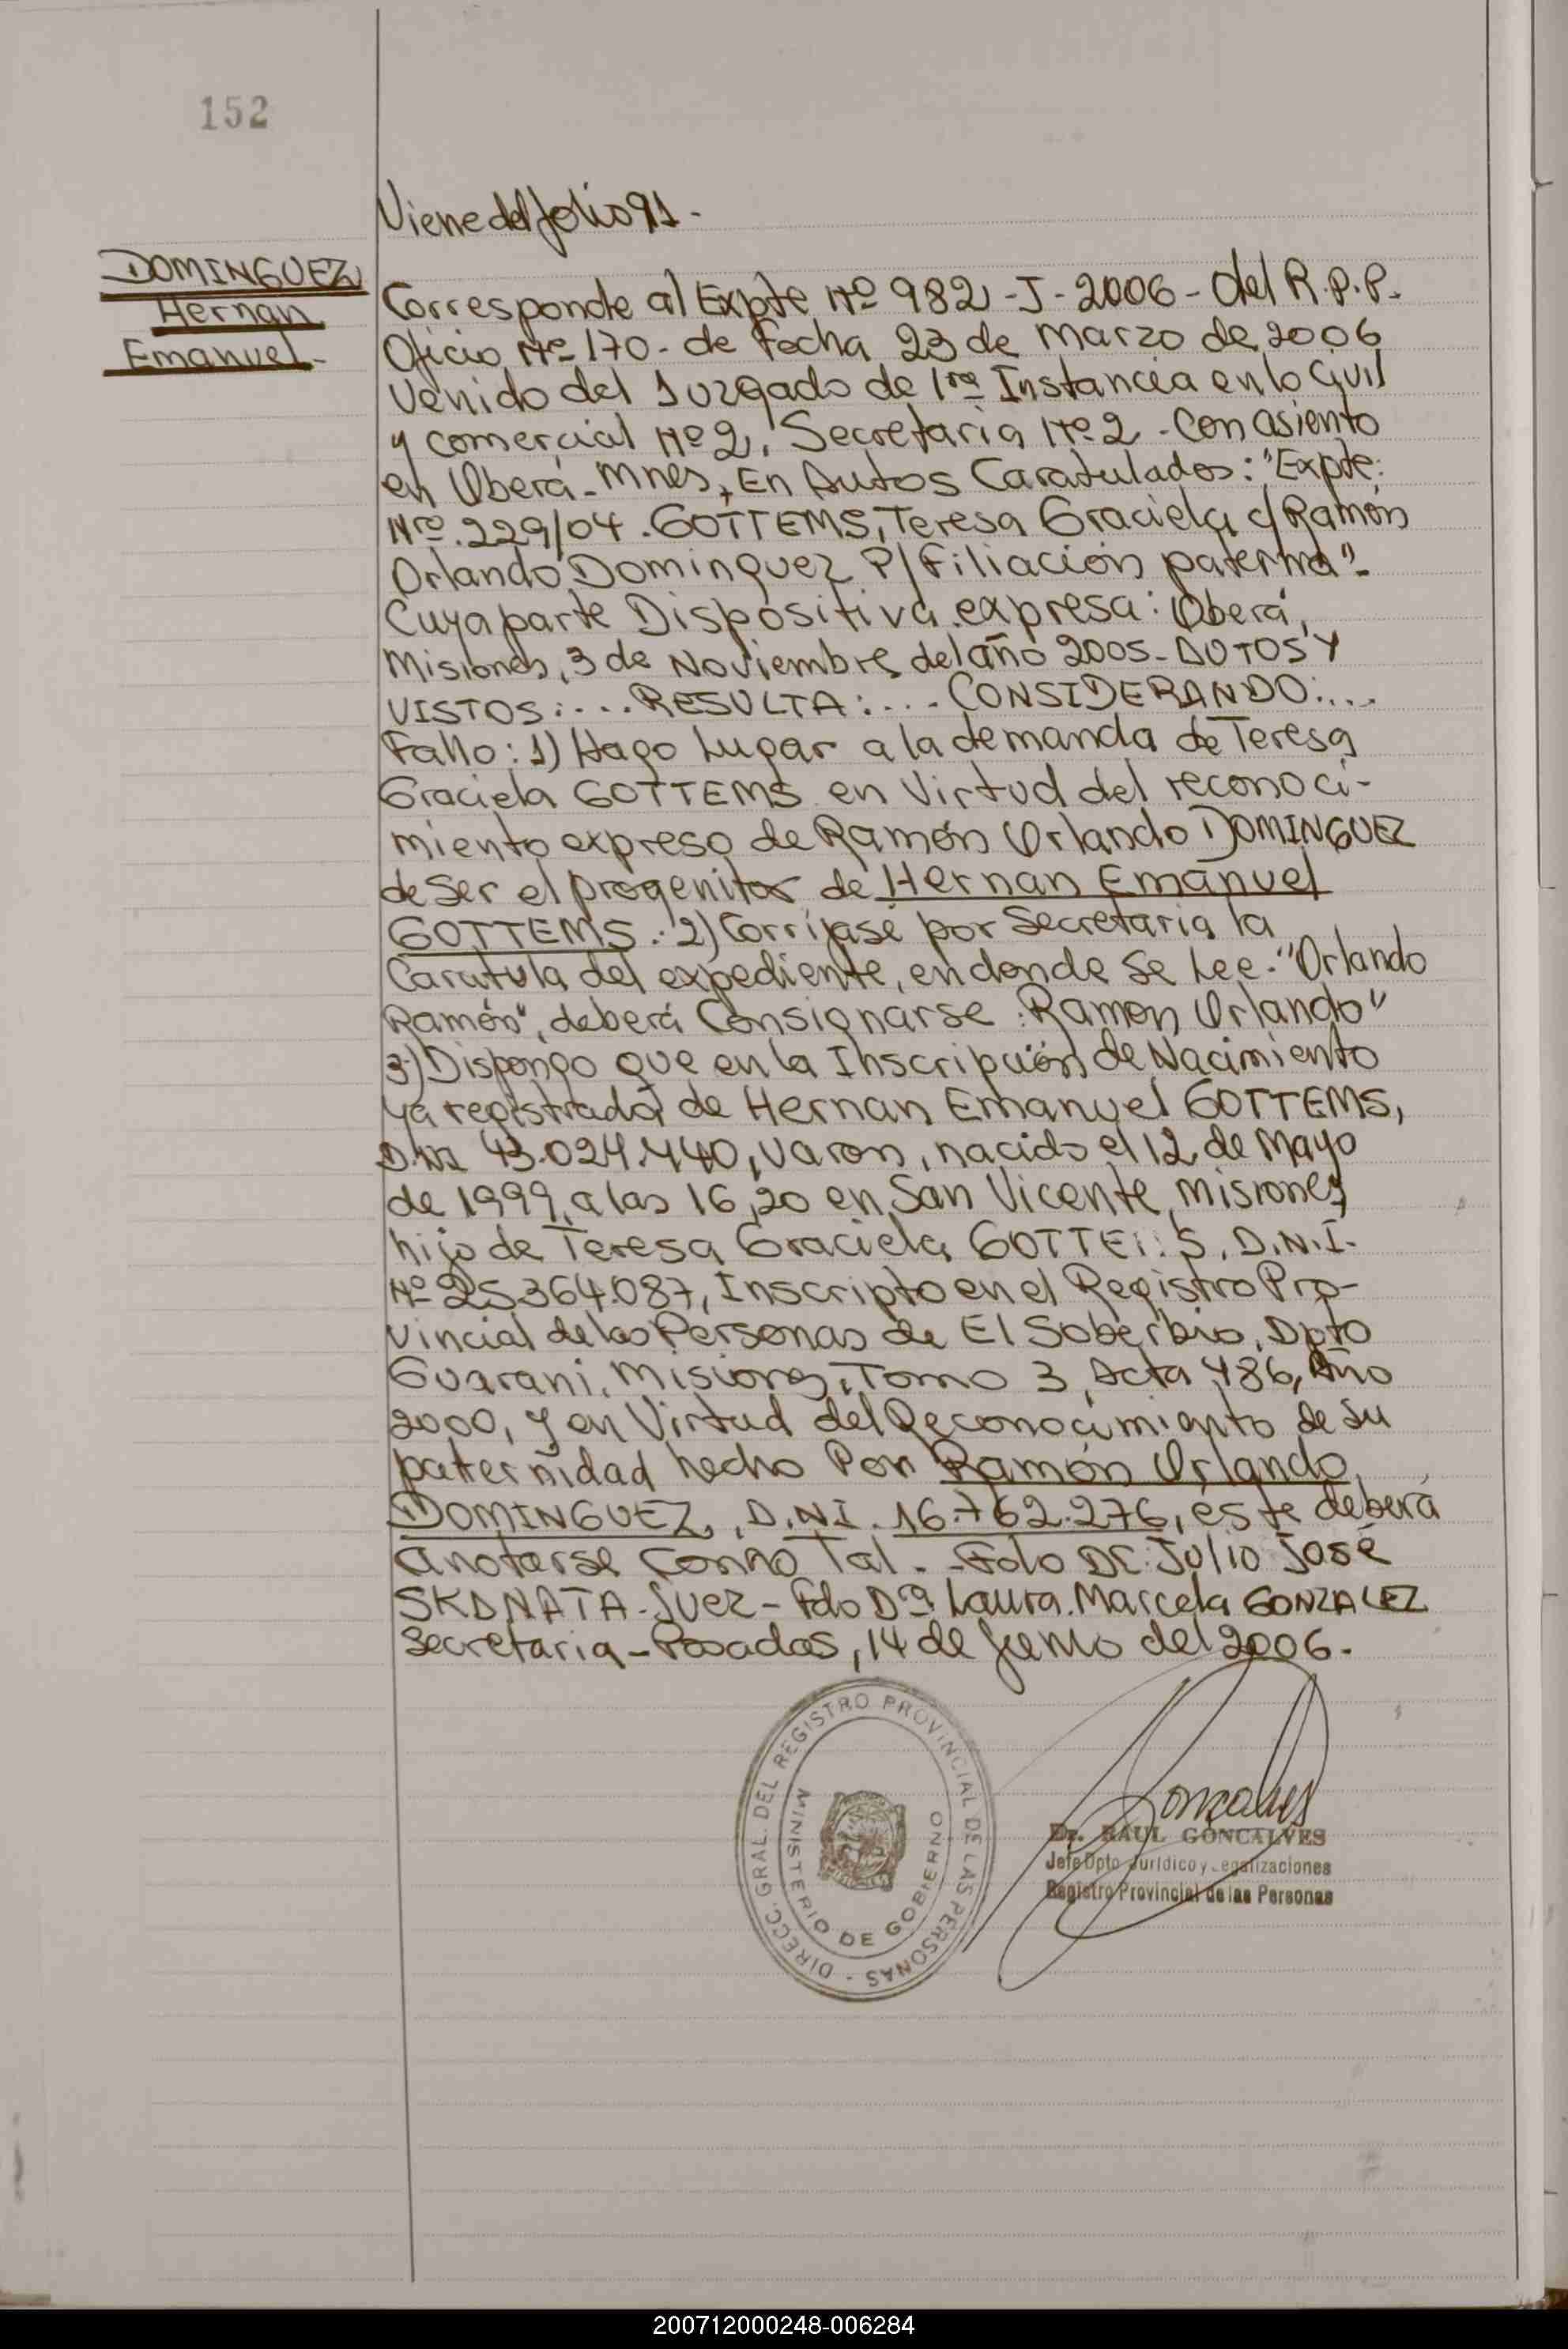 152
Viene del folio 91.
DOMINGUEZ
Hernan
Emanuel-
Corresponde al Expte Nº 982-J-2006- del R.P.P.
Oficio Nº 170- de Fecha 23 de Marzo de 2006
Venido del Juzgado de 1ra Instancia en lo Civil
y comercial Nº 2, Secretaria Nº 2 - Con asiento
en Oberá - Mnes, En Autos Caratulados: "Expte:
Nro. 229/04. GOTTEMS, Teresa Graciela c/ Ramón
Orlando Dominguez P/ Filiación paterna"-
Cuya parte Dispositiva expresa: Oberá,
Misiones, 3 de Noviembre del año 2005- AUTOS Y
VISTOS:.... RESULTA:.... CONSIDERANDO:....
Fallo: 1) Hago Lugar a la demanda de Teresa
Graciela GOTTEMS en Virtud del reconoci-
miento expreso de Ramón Orlando DOMINGUEZ
de Ser el progenitor de Hernan Emanuel
GOTTEMS. 2) Corrijase por Secretaria la
Caratula del expediente, en donde Se Lee-"Orlando
Ramón", deberá Consignarse: Ramon Orlando"
3) Dispongo que en la Inscripción de Nacimiento
ya registrada de Hernan Emanuel GOTTEMS,
D.NI 43.024.440, varon, nacido el 12 de Mayo
de 1999, a las 16,20 en San Vicente, Misiones,
hijo de Teresa Graciela GOTTEMS, D.N.I-
Nº 25364.087, Inscripto en el Registro Pro-
vincial de las Personas de El Soberbio, Dpto
Guarani, Misiones, Tomo 3, Acta 486, Año
2000, y en Virtud del Reconocimiento de su
paternidad hecho Por Ramón Orlando
DOMINGUEZ, D.NI. 16.762.276, éste deberá
anotarse como Tal.- Fdo Dr: Julio José
SKANATA-Juez- Fdo Dra Laura Marcela GONZALEZ
Secretaria - Posadas, 14 de Junio del 2006.
DIRECC. GRAL. DEL REGISTRO PROVINCIAL DE LAS PERSONAS -
MINISTERIO DE GOBIERNO
Goncalves
Dr. RAUL GONCALVES
Jefe Dpto Jurídico y Legalizaciones
Registro Provincial de las Personas
200712000248-006284